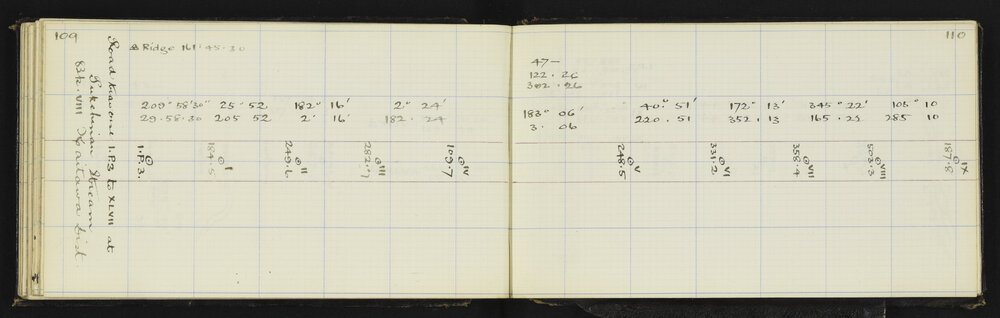 109
Road traverse I.P.3 to XLVII at
Stream
Blk. VIII Kaitawa Dist.
△ Ridge 161·45·30
209° 58'30" 25° 52 182° 16' 2° 24'
29·58·30 205 52 2' 16' 182·24
⊙ I.P.3.
⊙ I 184.5
⊙ II 249.6
⊙ III 282.7
⊙ IV 109.7
110
47—
122·26
302·26
183° 06' 40° 51' 172° 13' 345° 22' 105° 10
3· 06 220·51 352·13 165·22 285 10
⊙ V 248.5
⊙ VI 331.2
⊙ VII 358.4
⊙ VIII 503.3
⊙ IX 187.8